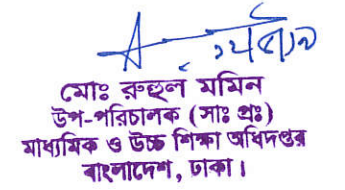 মোঃ রুহুল মমিন
উপ-পরিচালক (সাঃ প্রঃ)
মাধ্যমিক ও উচ্চ শিক্ষা অধিদপ্তর
বাংলাদেশ, ঢাকা।